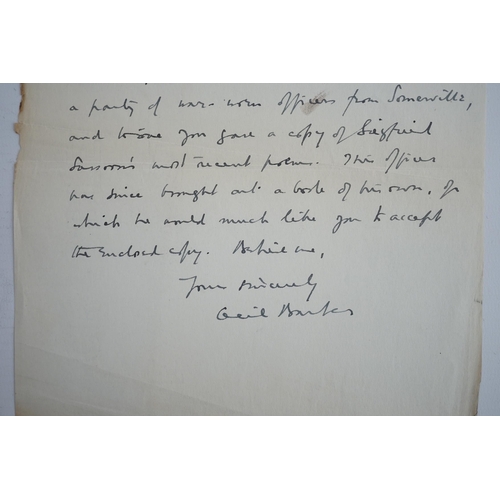 a party of war-worn officers from Somerville,
and to one you gave a copy of Siegfried
Sassoon's most recent poems. This officer
has since brought out a book of his own, of
which he would much like you to accept
the enclosed copy. Believe me,
Yours sincerely
Cecil